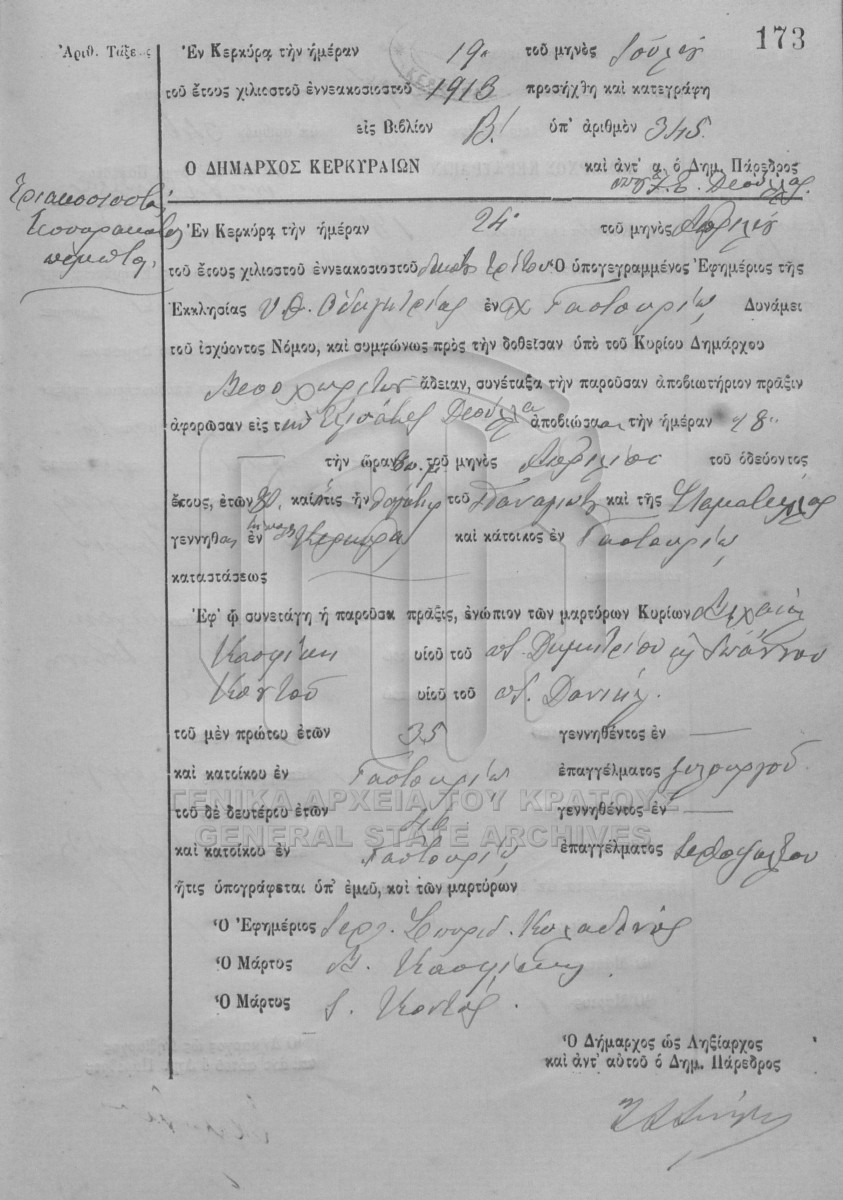 173
Ἀριθ. Τάξεως Ἐν Κερκύρᾳ τὴν ἡμέραν 19 τοῦ μηνὸς Ἰουλίου
τοῦ ἔτους χιλιοστοῦ ἐννεακοσιοστοῦ 1913 προσήχθη καὶ κατεγράφη
εἰς Βιβλίον Β! ὑπ' ἀριθμὸν 345.
Ο ΔΗΜΑΡΧΟΣ ΚΕΡΚΥΡΑΙΩΝ καὶ ἀντ' α. ὁ Δημ. Πάρεδρος
Τριακοσιοστὴ
Τεσσαρακοστὴ
πέμπτη.
Ἐν Κερκύρᾳ τὴν ἡμέραν 24 τοῦ μηνὸς Ἀπριλίου
τοῦ ἔτους χιλιοστοῦ ἐννεακοσιοστοῦ δεκάτου τρίτου Ὁ ὑπογεγραμμένος Ἐφημέριος τῆς
Ἐκκλησίας Υ. Θ. Ὁδηγητρίας ἐν Γαστουρίῳ Δυνάμει
τοῦ ἰσχύοντος Νόμου, καὶ συμφώνως πρὸς τὴν δοθεῖσαν ὑπὸ τοῦ Κυρίου Δημάρχου
Μεσοχωριτῶν ἄδειαν, συνέταξα τὴν παροῦσαν ἀποβιωτήριον πρᾶξιν
ἀφορῶσαν εἰς τὴν Ἐλισάβετ ἀποβιώσασαν τὴν ἡμέραν 18
τὴν ὥραν τοῦ μηνὸς Ἀπριλίου τοῦ ὁδεύοντος
ἔτους, ἐτῶν 80. καὶ ἥτις ἦν θυγάτηρ τοῦ Παναγιώτη καὶ τῆς Σταματέλλας
γεννηθεῖσα ἐν Κερκύρᾳ καὶ κάτοικος ἐν Γαστουρίῳ
καταστάσεως
Ἐφ' ᾧ συνετάγη ἡ παροῦσα πρᾶξις, ἐνώπιον τῶν μαρτύρων Κυρίων Μιχαὴλ
υἱοῦ τοῦ ποτ. Δημητρίου καὶ Ἰωάννου
Κοντοῦ υἱοῦ τοῦ ποτ. Δανιὴλ
τοῦ μὲν πρώτου ἐτῶν 35 γεννηθέντος ἐν —
καὶ κατοίκου ἐν Γαστουρίῳ ἐπαγγέλματος ξυλουργοῦ
τοῦ δὲ δευτέρου ἐτῶν γεννηθέντος ἐν —
καὶ κατοίκου ἐν Γαστουρίῳ ἐπαγγέλματος ἱεροψάλτου
ἥτις ὑπογράφεται ὑπ' ἐμοῦ, καὶ τῶν μαρτύρων
Ὁ Ἐφημέριος Ἱερ. Σπυρίδ.
Ὁ Μάρτυς Μ.
Ὁ Μάρτυς Ι. Κοντός.
Ὁ Δήμαρχος ὡς Ληξίαρχος
καὶ ἀντ' αὐτοῦ ὁ Δημ. Πάρεδρος
ΓΕΝΙΚΑ ΑΡΧΕΙΑ ΤΟΥ ΚΡΑΤΟΥΣ
GENERAL STATE ARCHIVES